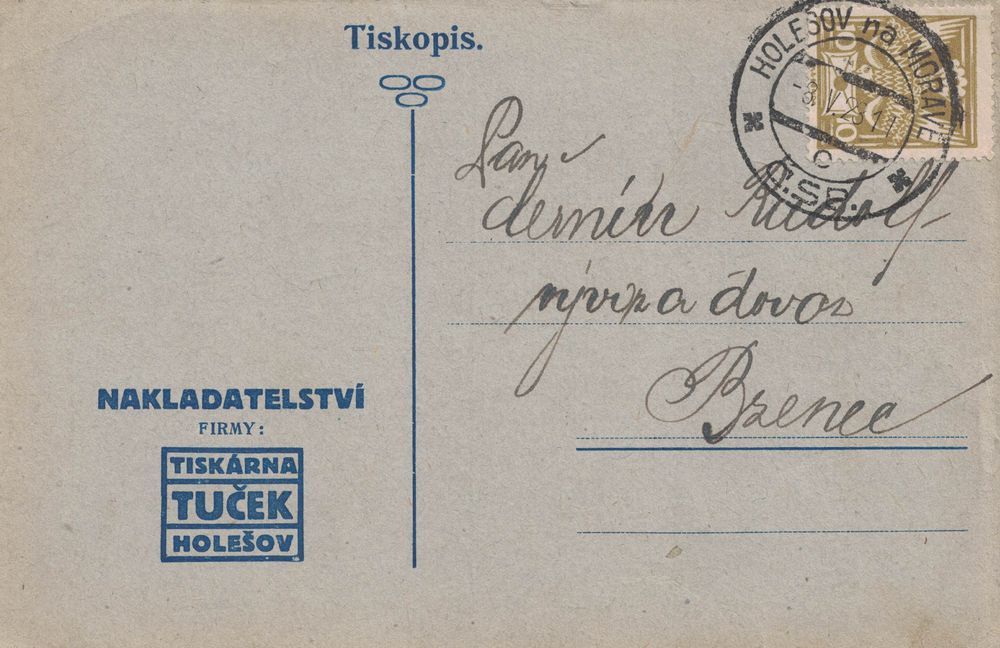 Tiskopis.
HOLEŠOV na MORAVĚ
-8.V.23.11
Č.S.P.
10
10
Pan
Rudolf
výviz a dovoz
Bzenec
NAKLADATELSTVÍ
FIRMY:
TISKÁRNA
TUČEK
HOLEŠOV